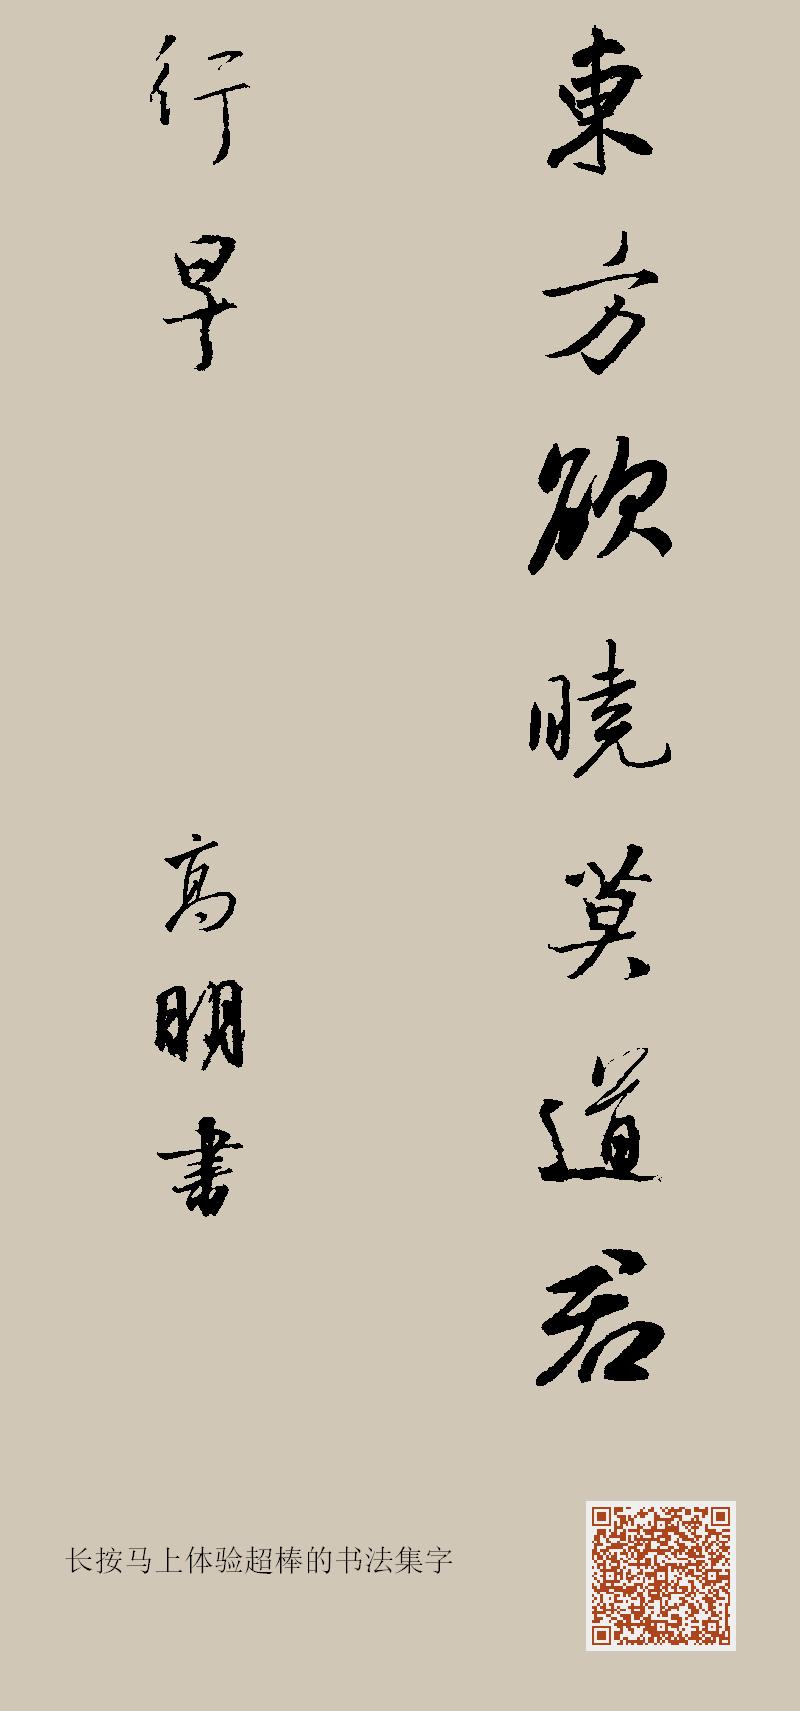 東方欲曉莫道君
行早
高明書
长按马上体验超棒的书法集字